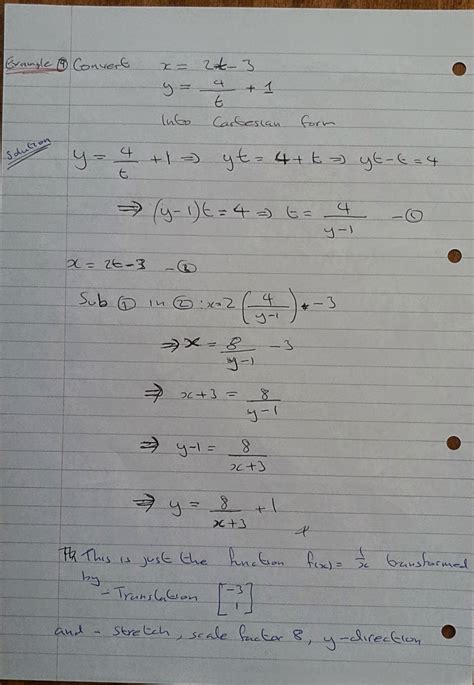 Example 9 Convert x = 2t - 3
y = 4/t + 1
Into Cartesian form
Solution
y = 4/t + 1 ⇒ yt = 4 + t ⇒ yt - t = 4
⇒ (y-1)t = 4 ⇒ t = 4/(y-1) - ①
x = 2t - 3 - ②
Sub ① in ② : x = 2(4/(y-1)) - 3
⇒ x = 8/(y-1) - 3
⇒ x+3 = 8/(y-1)
⇒ y-1 = 8/(x+3)
⇒ y = 8/(x+3) + 1
This is just the function f(x) = 1/x transformed
by
- Translation [-3 1]
and - stretch, scale factor 8, y-direction